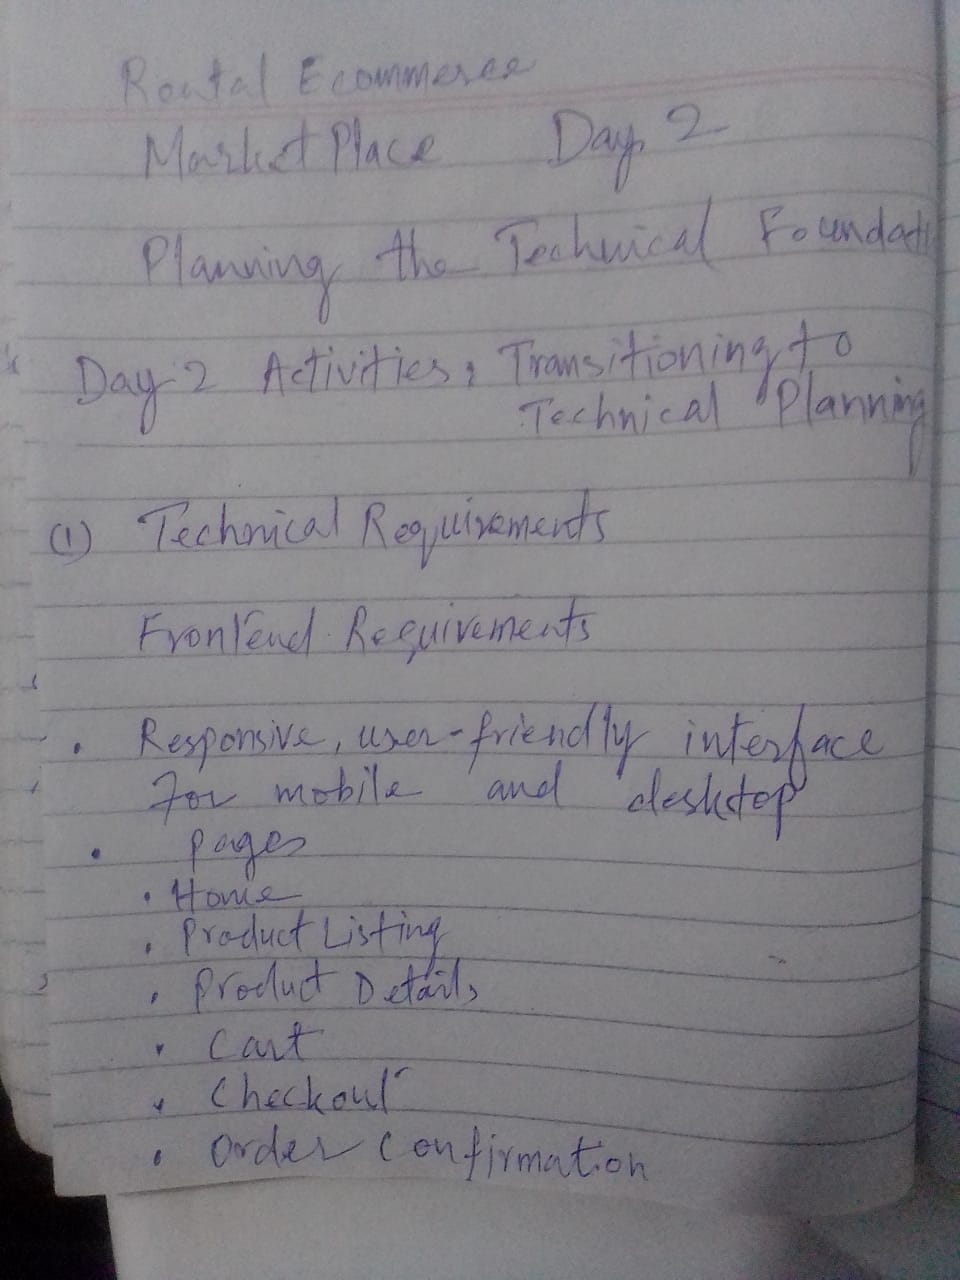 Rental Ecommerce
Market Place Day 2
Planning the Technical Foundati
Day 2 Activities: Transitioning to
Technical Planning
(1) Technical Requirements
Frontend Requirements
• Responsive, user-friendly interface
For mobile and desktop
• Pages
• Home
• Product Listing
• Product Details
• Cart
• Checkout
• Order Confirmation